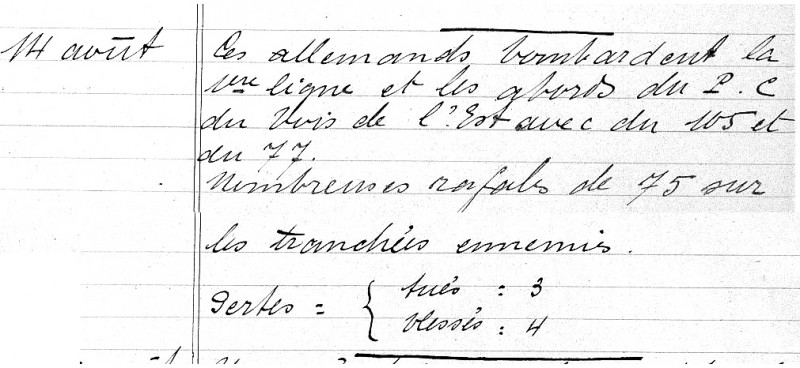 14 août
Les allemands bombardent la
1ère ligne et les abords du P.C
du bois de l'Est avec du 105 et
du 77.
Nombreuses rafales de 75 sur
les tranchées ennemis.
Pertes = { tués : 3
blessés : 4